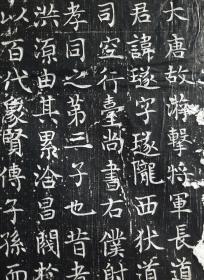 大唐故游擊將軍長道
君諱璲字璲隴西狄道
司空行臺尚書右僕射
孝同之第三子也昔者
洪源由其累洽昌閥
以百代象賢傳子孫而